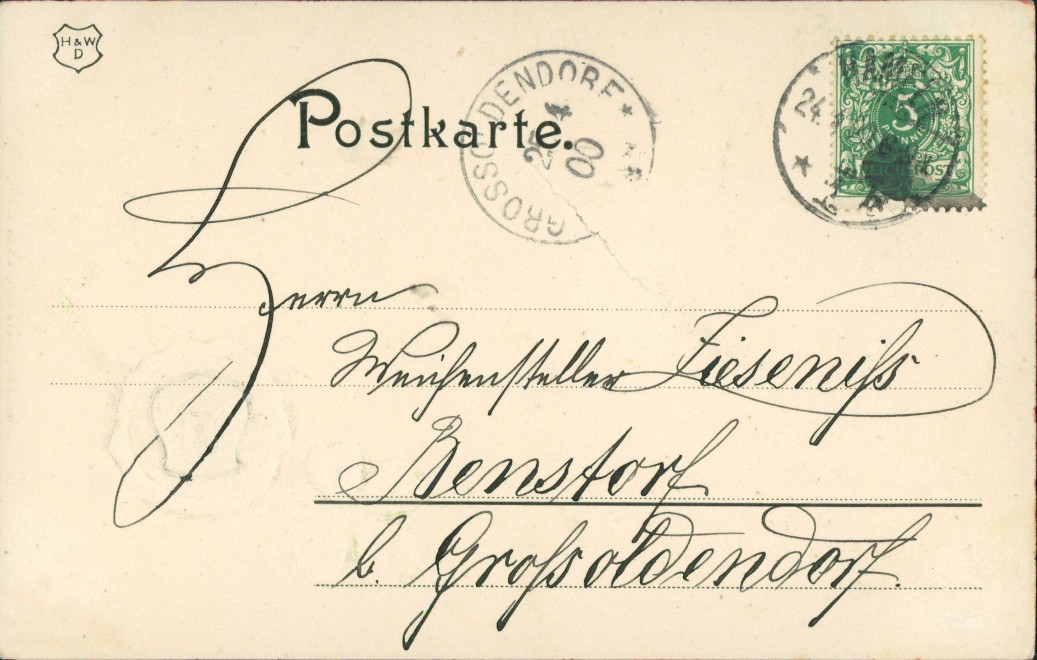 H & W
D
Postkarte.
GROSSOLDENDORF
4
00
24.
5
REICHSPOST
Herrn
Weichensteller Zieseniſs
Benstorf
b. Groſsoldendorf.